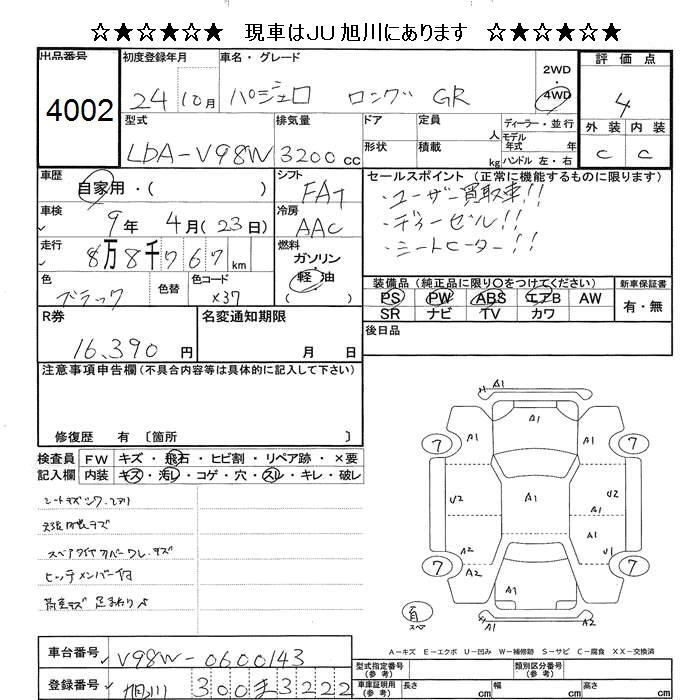 ☆★☆★☆★ 現車はJU旭川にあります ☆★☆★☆★
出品番号
4002
初度登録年月
24 10月
車名・グレード
パジェロ ロング GR
2WD
・
4WD
評価点
4
外装 内装
C C
型式
LDA-V98W
排気量
3200 cc
ドア
形状
定員 人
積載 kg
ディーラー・並行
モデル年式 年
ハンドル 左・右
車歴
自家用・( )
シフト
FA7
車検
9年 4月(23日)
冷房
AAC
走行
8万8千767km
燃料
ガソリン
軽油
色
ブラック
色替
色コード
X37
セールスポイント(正常に機能するものに限ります)
・ユーザー買取車!!
・ディーゼル!!
・シートヒーター!!
装備品(純正品に限り〇をつけてください)
PS PW ABS エアB AW
SR ナビ TV カワ
新車保証書
有・無
R券
16,390円
名変通知期限
月 日
後日品
注意事項申告欄(不具合内容等は具体的に記入して下さい)
修復歴 有〔箇所 〕
検査員記入欄
FW キズ・飛石・ヒビ割・リペア跡・×要
内装 キズ・汚レ・コゲ・穴・スレ・キレ・破レ
スペアタイヤカバーワレ、キズ
ヒッチメンバー付
A1
A1 A1 A1
7 7
U2 A1 U2
A1
A2 U1
7 7
A2 A1 A2
有
スペ
A1 A2
A-キズ E-エクボ U-凹み W-補修跡 S-サビ C-腐食 XX-交換済
車台番号
V98W-0600143
登録番号
旭川 300 ま 3222
型式指定番号(参考)
類別区分番号(参考)
車庫証明用(参考)
長さ cm
幅 cm
高さ cm